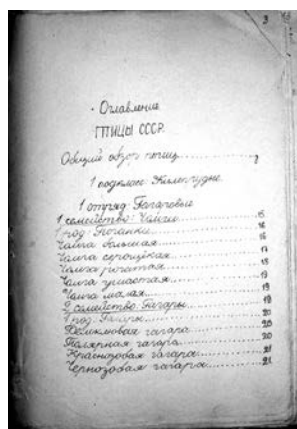 3
Оглавление
ПТИЦЫ СССР.
Общий обзор птиц
1 подкласс: Килегрудые.
1 отряд: Гагаровые
1 семейство: Чомги 15
1 род: Поганки 16
Чомга большая 16
Чомга серощёкая 17
Чомга рогатая 18
Чомга ушастая 19
Чомга малая 19
2 семейство: Гагары 19
1 род: Гагары 20
Белоклювая гагара 20
Полярная гагара 20
Краснозобая гагара 21
Чернозобая гагара 21